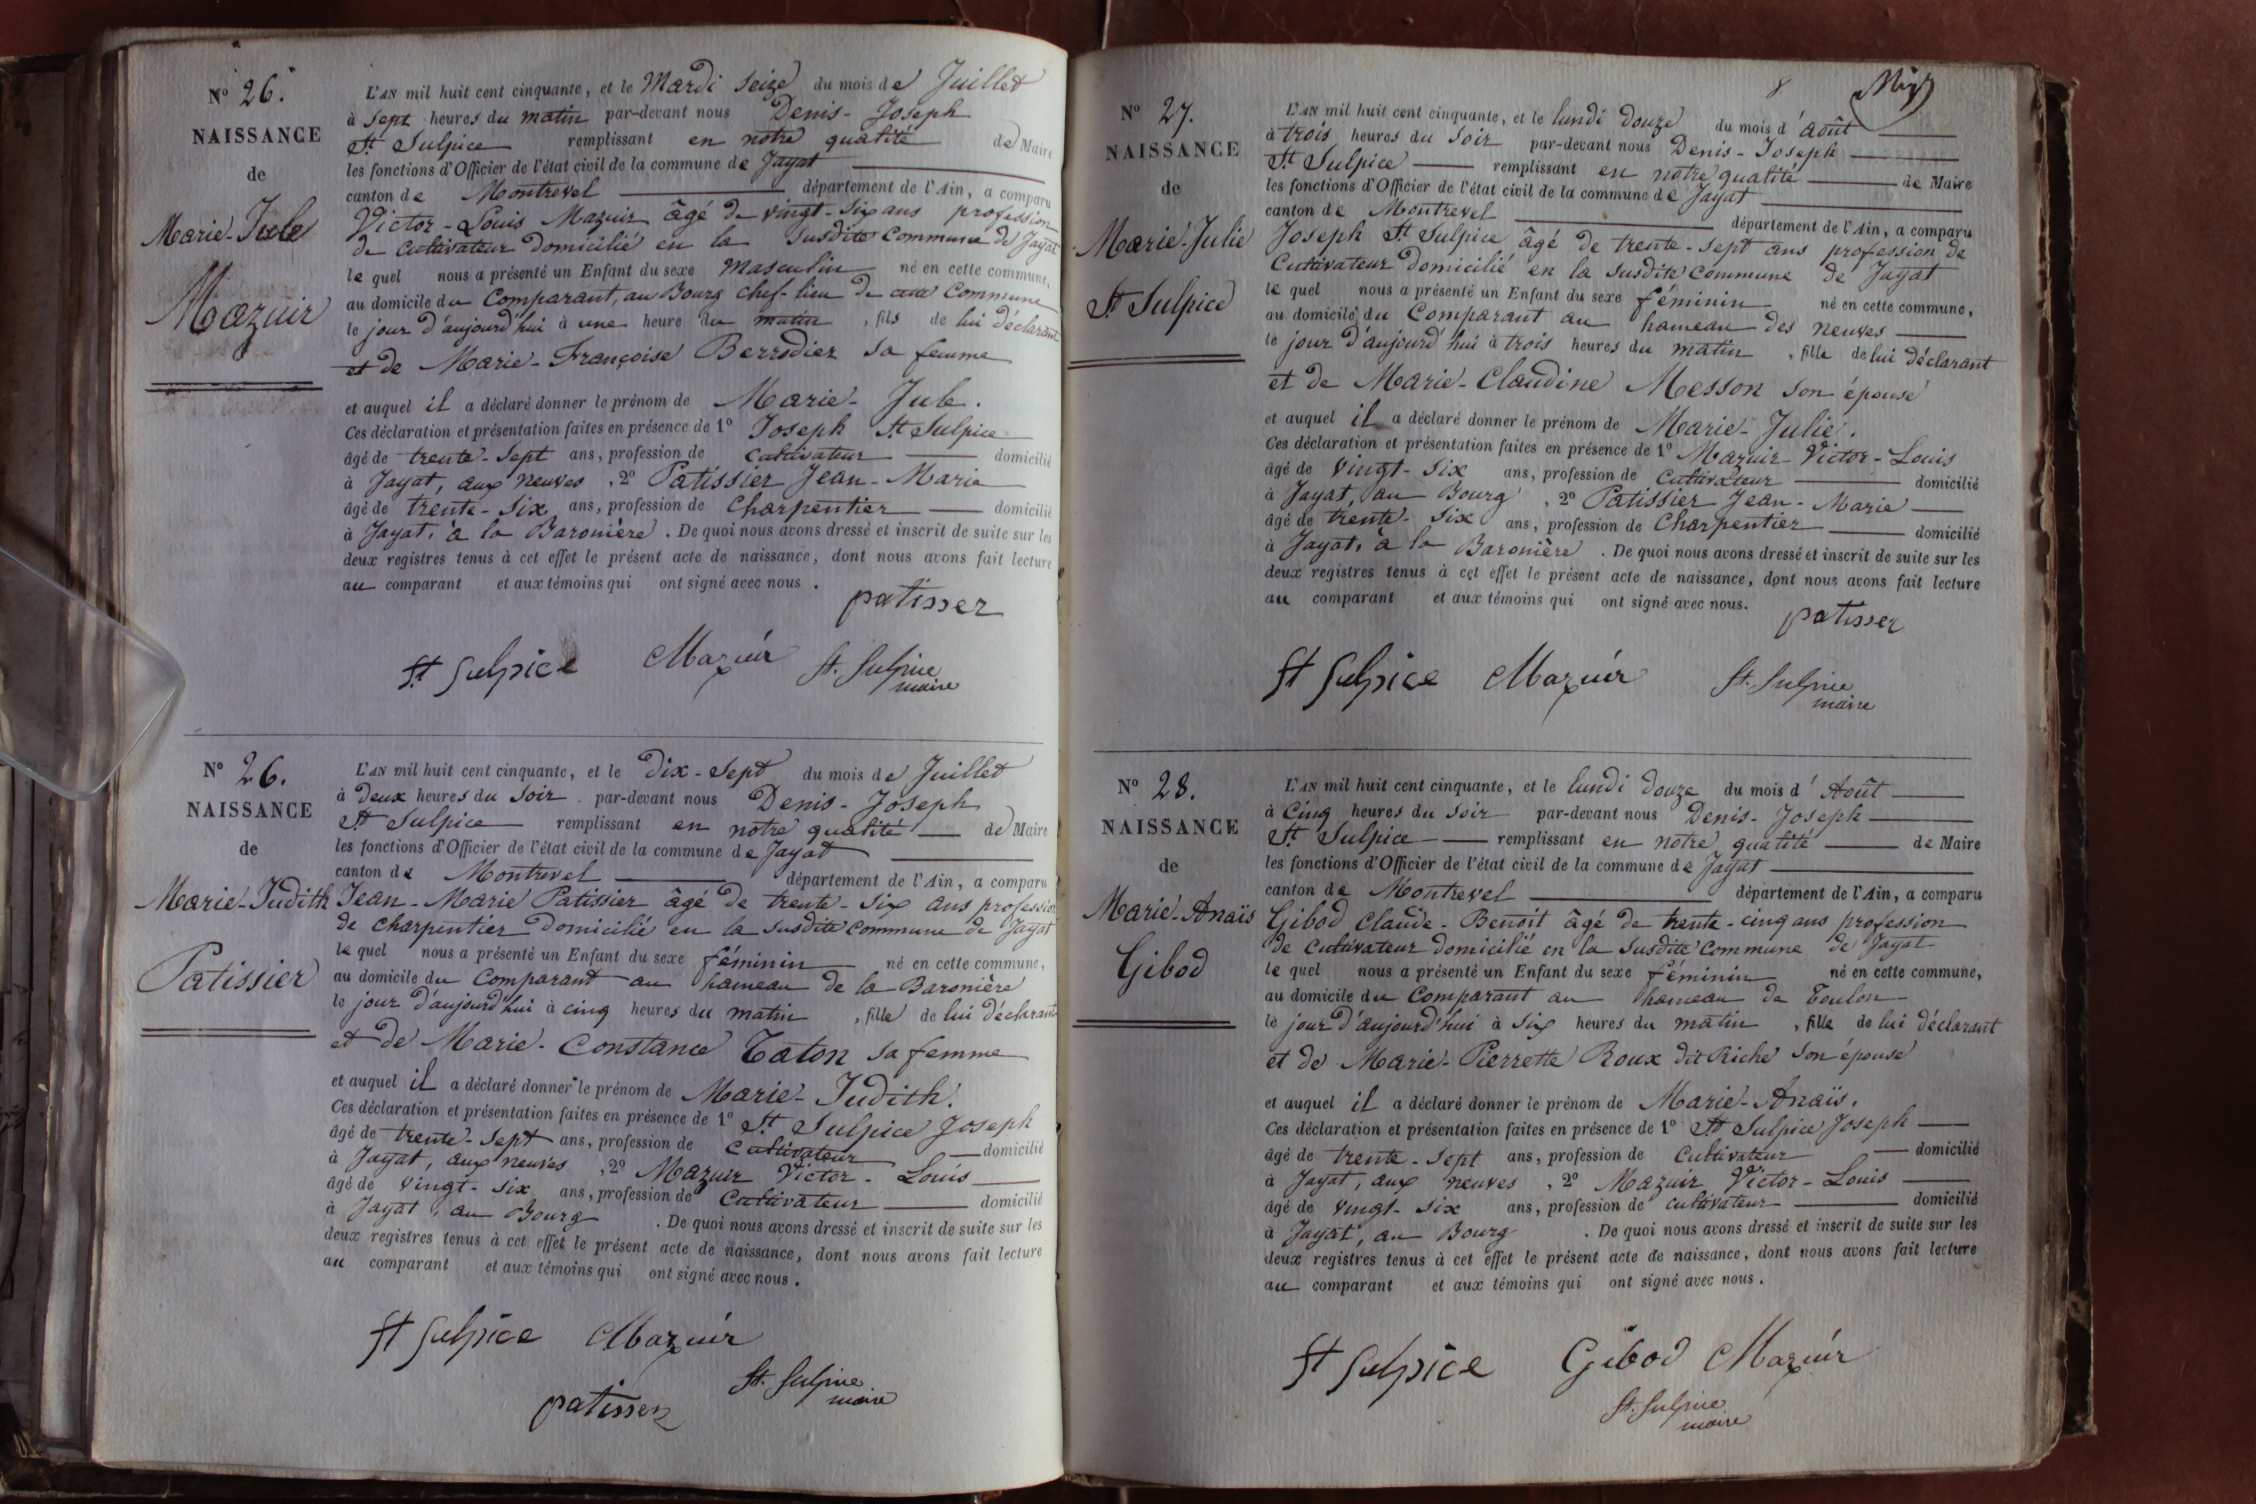 N° 26.
NAISSANCE
de
Marie-Jule
Mazuir
L'AN mil huit cent cinquante, et le Mardi seize du mois de Juillet
à sept heures du matin par-devant nous Denis-Joseph
St Sulpice remplissant en notre qualité de Maire
les fonctions d'Officier de l'état civil de la commune de Jayat
canton de Montrevel département de l'Ain, a comparu
Victor-Louis Mazuir âgé de vingt-six ans profession
de cultivateur domicilié en la susdite commune de Jayat
le quel nous a présenté un Enfant du sexe masculin né en cette commune,
au domicile du comparant, au Bourg chef-lieu de commune
le jour d'aujourd'hui à une heure du matin, fils de lui déclarant
et de Marie-Françoise Berrodier sa femme
et auquel il a déclaré donner le prénom de Marie-Jule.
Ces déclaration et présentation faites en présence de 1° Joseph St Sulpice
âgé de trente-sept ans, profession de cultivateur domicilié
à Jayat, aux neuves, 2° Patissier Jean-Marie
âgé de trente-six ans, profession de Charpentier domicilié
à Jayat, à la Baronière. De quoi nous avons dressé et inscrit de suite sur les
deux registres tenus à cet effet le présent acte de naissance, dont nous avons fait lecture
au comparant et aux témoins qui ont signé avec nous.
patisser
St Sulpice Mazuir St. Sulpice
maire
N° 26.
NAISSANCE
de
Marie-Judith
Patissier
L'AN mil huit cent cinquante, et le dix-sept du mois de Juillet
à deux heures du soir par-devant nous Denis-Joseph
St Sulpice remplissant en notre qualité de Maire
les fonctions d'Officier de l'état civil de la commune de Jayat
canton de Montrevel département de l'Ain, a comparu
Jean-Marie Patissier âgé de trente-six ans profession
de charpentier domicilié en la susdite commune de Jayat
le quel nous a présenté un Enfant du sexe féminin né en cette commune,
au domicile du comparant au hameau de la Baronière
le jour d'aujourd'hui à cinq heures du matin, fille de lui déclarant
et de Marie-Constance Taton sa femme
et auquel il a déclaré donner le prénom de Marie-Judith.
Ces déclaration et présentation faites en présence de 1° St Sulpice Joseph
âgé de trente-sept ans, profession de cultivateur domicilié
à Jayat, aux neuves, 2° Mazuir Victor-Louis
âgé de vingt-six ans, profession de cultivateur domicilié
à Jayat, au Bourg. De quoi nous avons dressé et inscrit de suite sur les
deux registres tenus à cet effet le présent acte de naissance, dont nous avons fait lecture
au comparant et aux témoins qui ont signé avec nous.
St Sulpice Mazuir
St. Sulpice
maire
patisser
8
N° 27.
NAISSANCE
de
Marie-Julie
St Sulpice
L'AN mil huit cent cinquante, et le lundi douze du mois d'août
à trois heures du soir par-devant nous Denis-Joseph
St Sulpice remplissant en notre qualité de Maire
les fonctions d'Officier de l'état civil de la commune de Jayat
canton de Montrevel département de l'Ain, a comparu
Joseph St Sulpice âgé de trente-sept ans profession de
cultivateur domicilié en la susdite commune de Jayat
le quel nous a présenté un Enfant du sexe féminin né en cette commune,
au domicile du comparant au hameau des neuves
le jour d'aujourd'hui à trois heures du matin, fille de lui déclarant
et de Marie-Claudine Messon son épouse
et auquel il a déclaré donner le prénom de Marie-Julie.
Ces déclaration et présentation faites en présence de 1° Mazuir Victor-Louis
âgé de vingt-six ans, profession de cultivateur domicilié
à Jayat, au Bourg, 2° Patissier Jean-Marie
âgé de trente-six ans, profession de Charpentier domicilié
à Jayat, à la Baronière. De quoi nous avons dressé et inscrit de suite sur les
deux registres tenus à cet effet le présent acte de naissance, dont nous avons fait lecture
au comparant et aux témoins qui ont signé avec nous.
patisser
St Sulpice Mazuir St. Sulpice
maire
N° 28.
NAISSANCE
de
Marie-Anaïs
Gibod
L'AN mil huit cent cinquante, et le lundi douze du mois d'Août
à cinq heures du soir par-devant nous Denis-Joseph
St Sulpice remplissant en notre qualité de Maire
les fonctions d'Officier de l'état civil de la commune de Jayat
canton de Montrevel département de l'Ain, a comparu
Gibod Claude-Benoit âgé de trente-cinq ans profession
de cultivateur domicilié en la susdite commune de Jayat
le quel nous a présenté un Enfant du sexe féminin né en cette commune,
au domicile du comparant au hameau de Toulon
le jour d'aujourd'hui à six heures du matin, fille de lui déclarant
et de Marie-Pierrette Roux dit Riche son épouse
et auquel il a déclaré donner le prénom de Marie-Anaïs.
Ces déclaration et présentation faites en présence de 1° St Sulpice Joseph
âgé de trente-sept ans, profession de cultivateur domicilié
à Jayat, aux neuves, 2° Mazuir Victor-Louis
âgé de vingt-six ans, profession de cultivateur domicilié
à Jayat, au Bourg. De quoi nous avons dressé et inscrit de suite sur les
deux registres tenus à cet effet le présent acte de naissance, dont nous avons fait lecture
au comparant et aux témoins qui ont signé avec nous.
St Sulpice Gibod Mazuir
St. Sulpice
maire